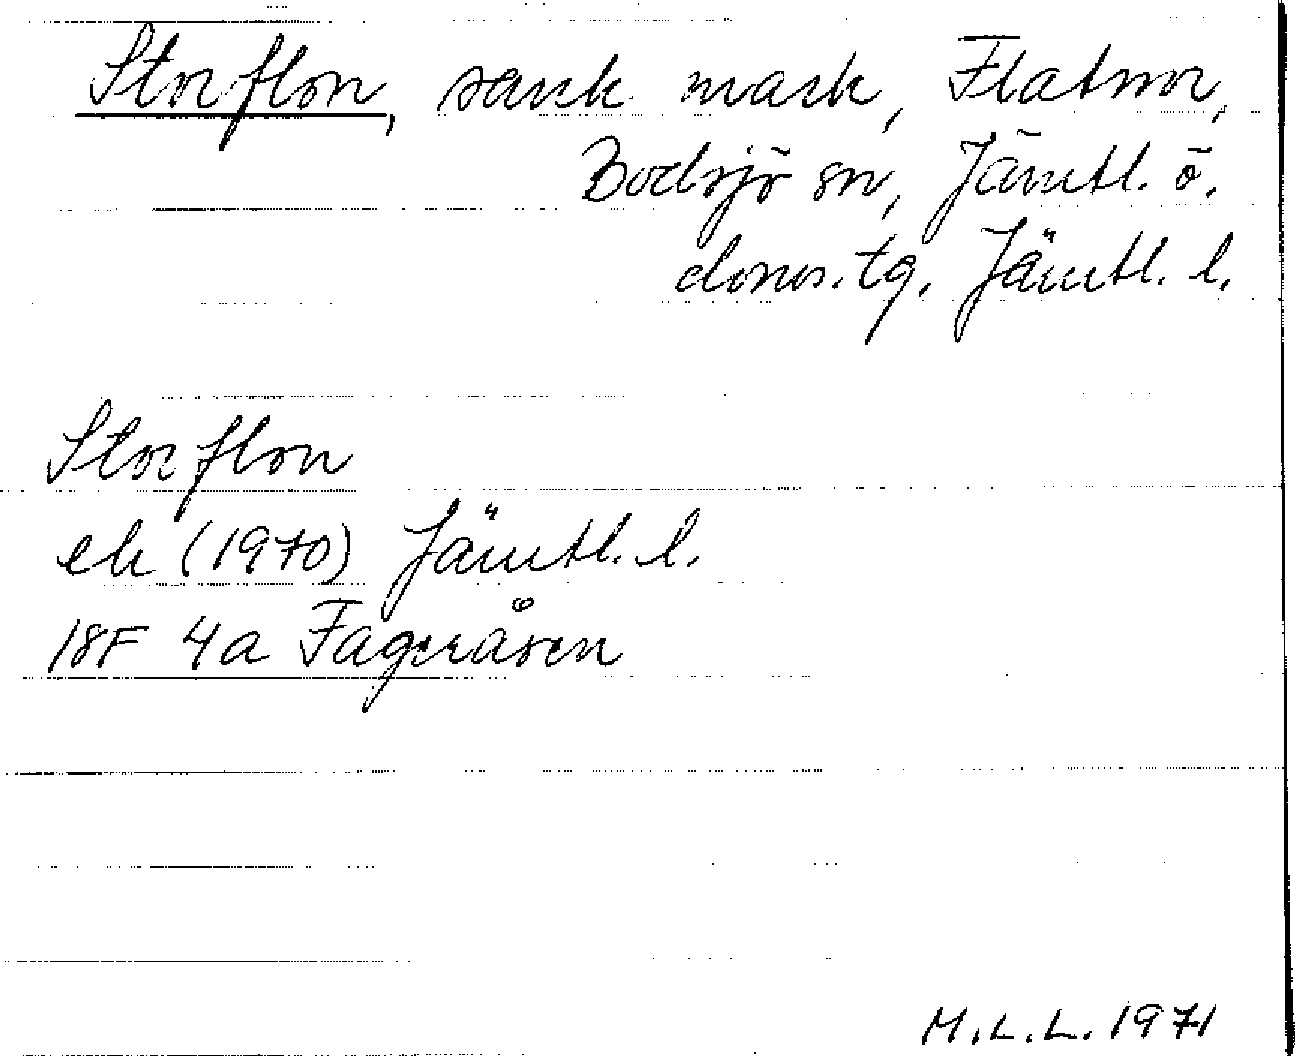 Storflon, sank mark, Flatnor,
Bodsjö sn, Jämtl. ö.
doms. tg, Jämtl. l.
Storflon
ek (1970) Jämtl. l.
18F 4a Fageråsen
M.L.L. 1971